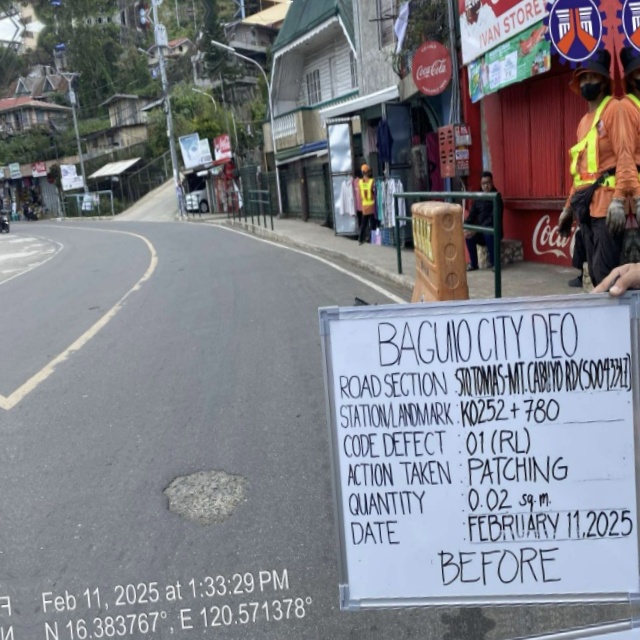 IVAN STORE
Coca-Cola
Coca-Cola
BAGUIO CITY DEO
ROAD SECTION STO TOMAS-MT. CABUYO RD (S00432BZ)
STATION/LANDMARK: K0252+780
CODE DEFECT : 01 (RL)
ACTION TAKEN : PATCHING
QUANTITY : 0.02 sq.m.
DATE : FEBRUARY 11, 2025
BEFORE
Feb 11, 2025 at 1:33:29 PM
N 16.383767°, E 120.571378°